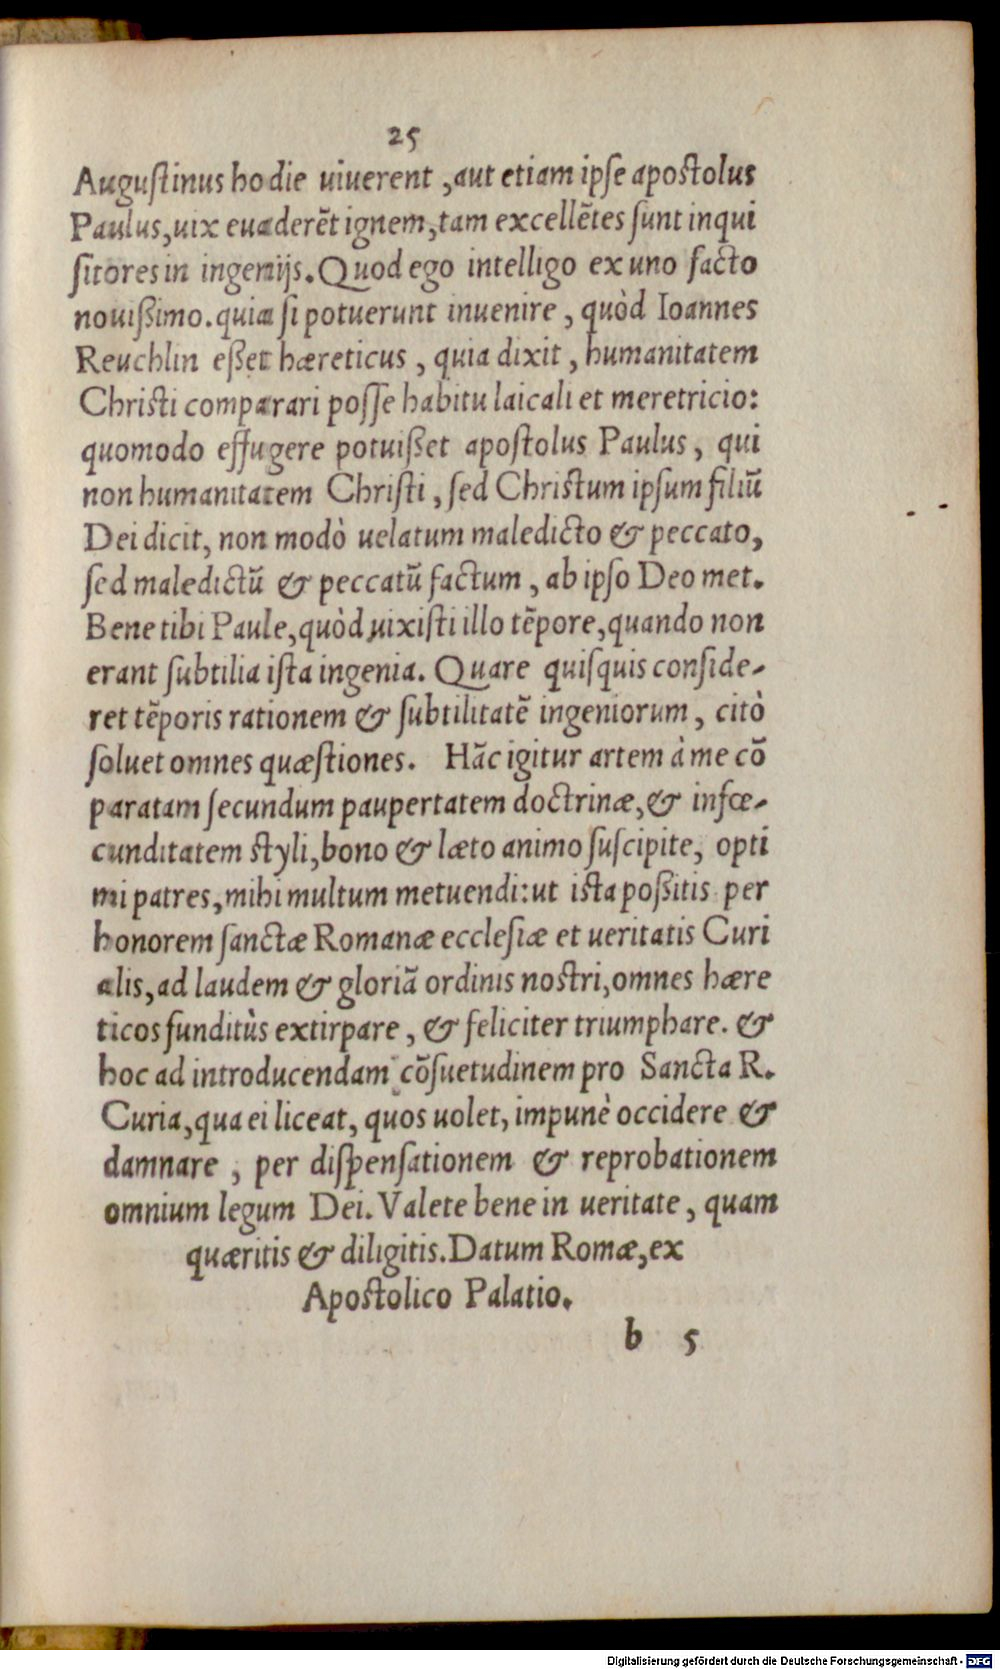 25
Auguſtinus hodie uiuerent, aut etiam ipſe apoſtolus
Paulus, uix euaderēt ignem, tam excellētes ſunt inqui
ſitores in ingenijs. Quod ego intelligo ex uno facto
nouißimo. quia ſi potuerunt inuenire, quòd Ioannes
Reuchlin eßet hæreticus, quia dixit, humanitatem
Chriſti comparari poſſe habitu laicali et meretricio:
quomodo effugere potuißet apoſtolus Paulus, qui
non humanitatem Chriſti, ſed Chriſtum ipſum filiū
Dei dicit, non modò uelatum maledicto & peccato,
ſed maledictū & peccatū factum, ab ipſo Deo met.
Bene tibi Paule, quòd uixiſti illo tēpore, quando non
erant ſubtilia iſta ingenia. Quare quiſquis conſide-
ret tēporis rationem & ſubtilitatē ingeniorum, citò
ſoluet omnes quæſtiones. Hāc igitur artem à me cō
paratam ſecundum paupertatem doctrinæ, & infœ-
cunditatem ſtyli, bono & læto animo ſuſcipite, opti
mi patres, mihi multum metuendi: ut iſta poßitis per
honorem ſanctæ Romanæ eccleſiæ et ueritatis Curi
alis, ad laudem & gloriā ordinis noſtri, omnes hære
ticos funditùs extirpare, & feliciter triumphare. &
hoc ad introducendam cōſuetudinem pro Sancta R.
Curia, qua ei liceat, quos uolet, impunè occidere &
damnare, per diſpenſationem & reprobationem
omnium legum Dei. Valete bene in ueritate, quam
quæritis & diligitis. Datum Romæ, ex
Apoſtolico Palatio.
b 5
Digitalisierung gefördert durch die Deutsche Forschungsgemeinschaft - DFG